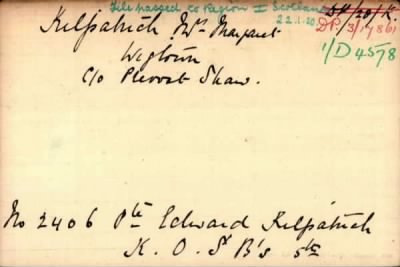 File passed to Region I Scotland
22.1.20.
DP/20/K.
Kilpatrick Mrs Margaret
DP. /3/17861
1/D4578
Wigtown
C/o Provost Shaw.
No 2406 Pte Edward Kilpatrick
K. O. S B's 5th